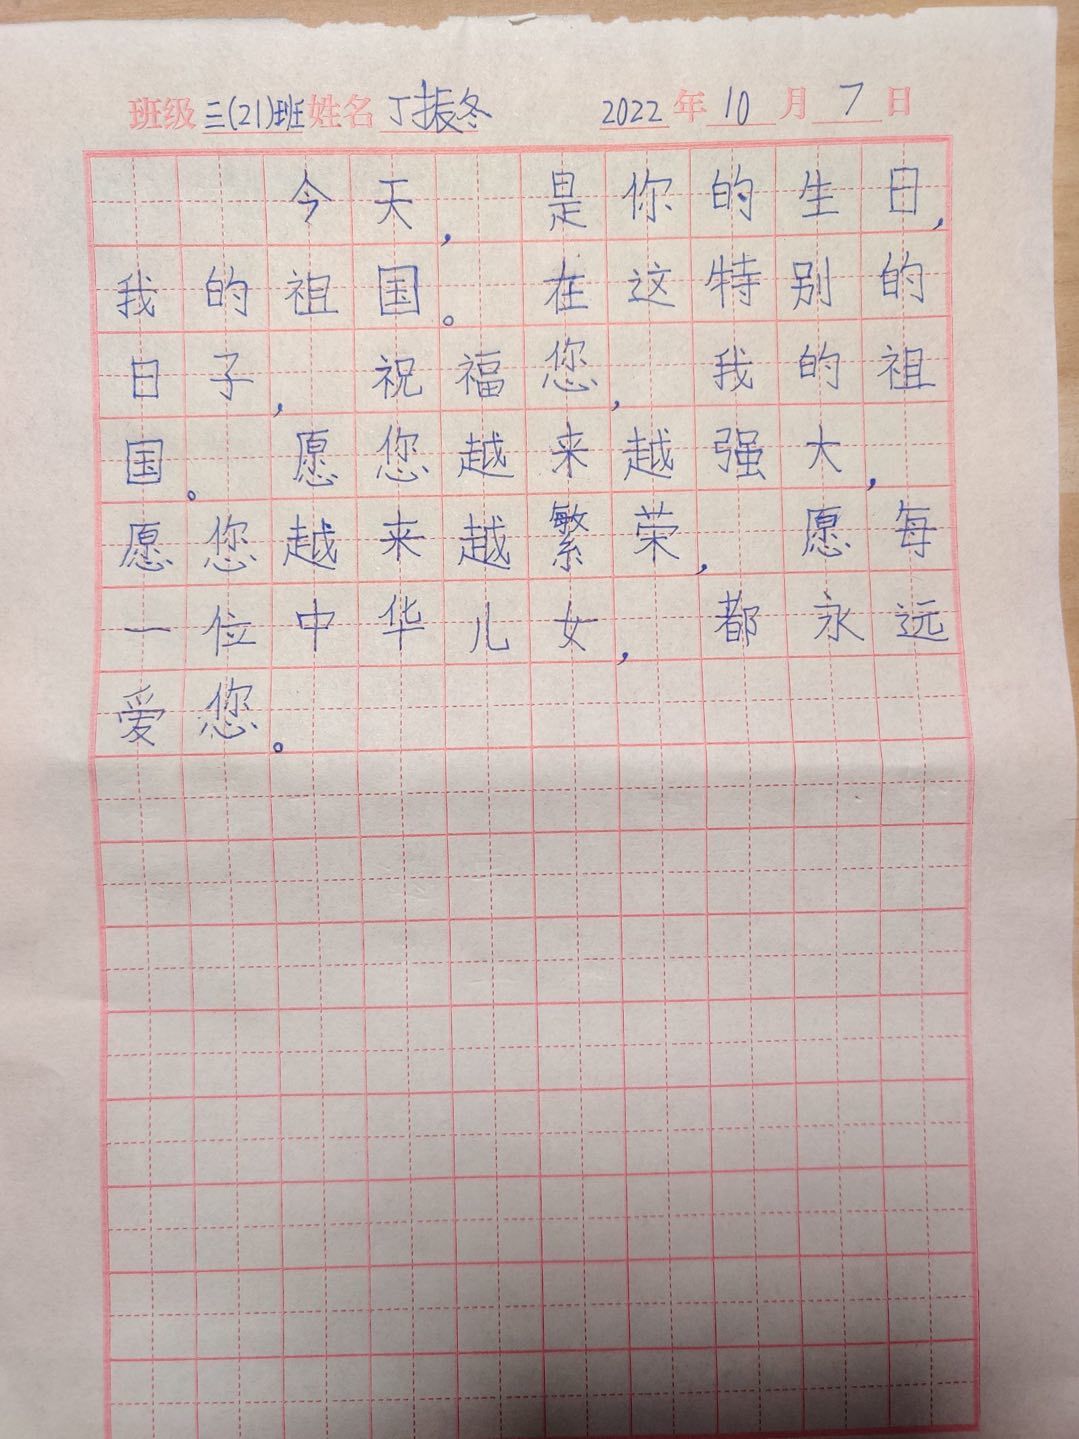 班级 三(21)班 姓名 丁振冬 2022 年 10 月 7 日
今天，是你的生日，
我的祖国。在这特别的
日子，祝福您，我的祖
国。愿您越来越强大，
愿您越来越繁荣，愿每
一位中华儿女，都永远
爱您。